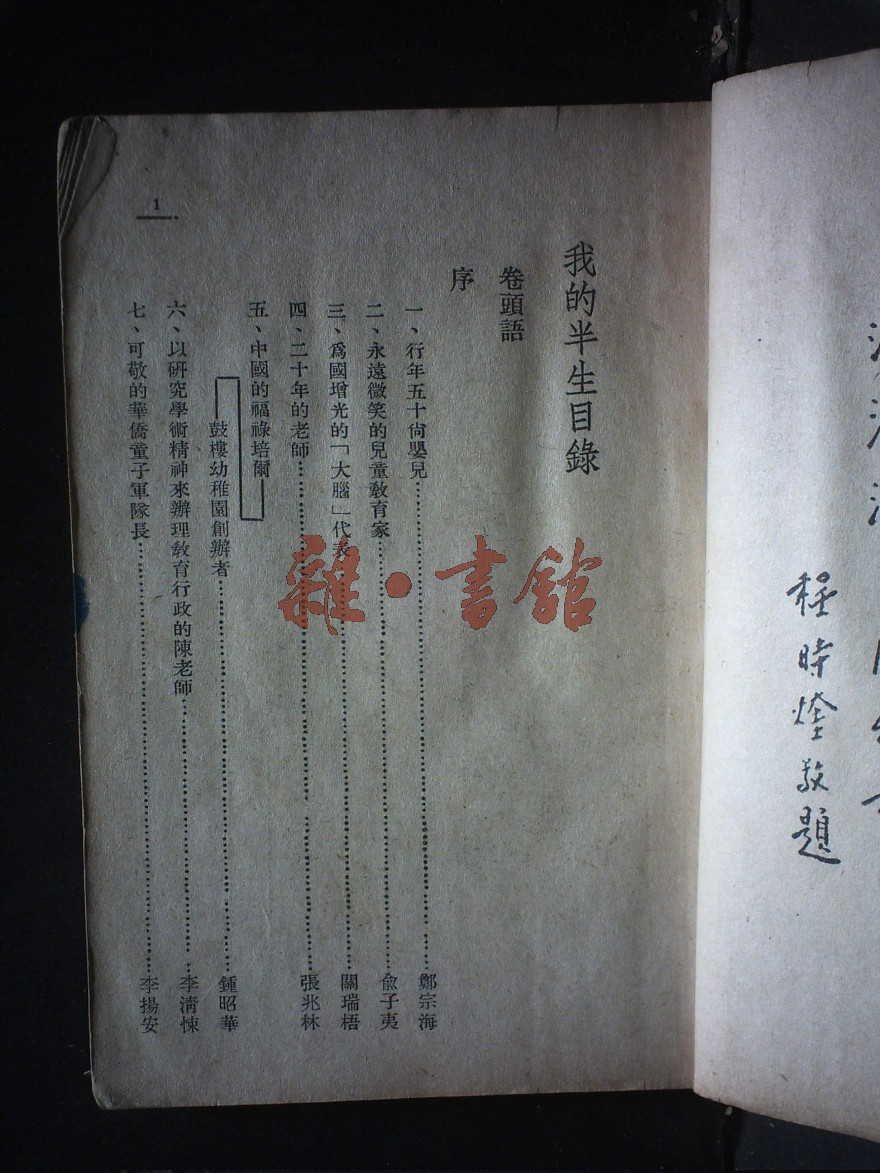 程時煃敬題
我的半生目錄
卷頭語
序
一、行年五十尙嬰兒……鄭宗海
二、永遠微笑的兒童敎育家……俞子夷
三、爲國增光的「大腦」代表……關瑞梧
四、二十年的老師……張兆林
五、中國的福祿培爾——
——鼓樓幼稚園創辦者……鍾昭華
六、以硏究學術精神來辦理敎育行政的陳老師……李淸悚
七、可敬的華僑童子軍隊長……李揚安
1
雜·書館